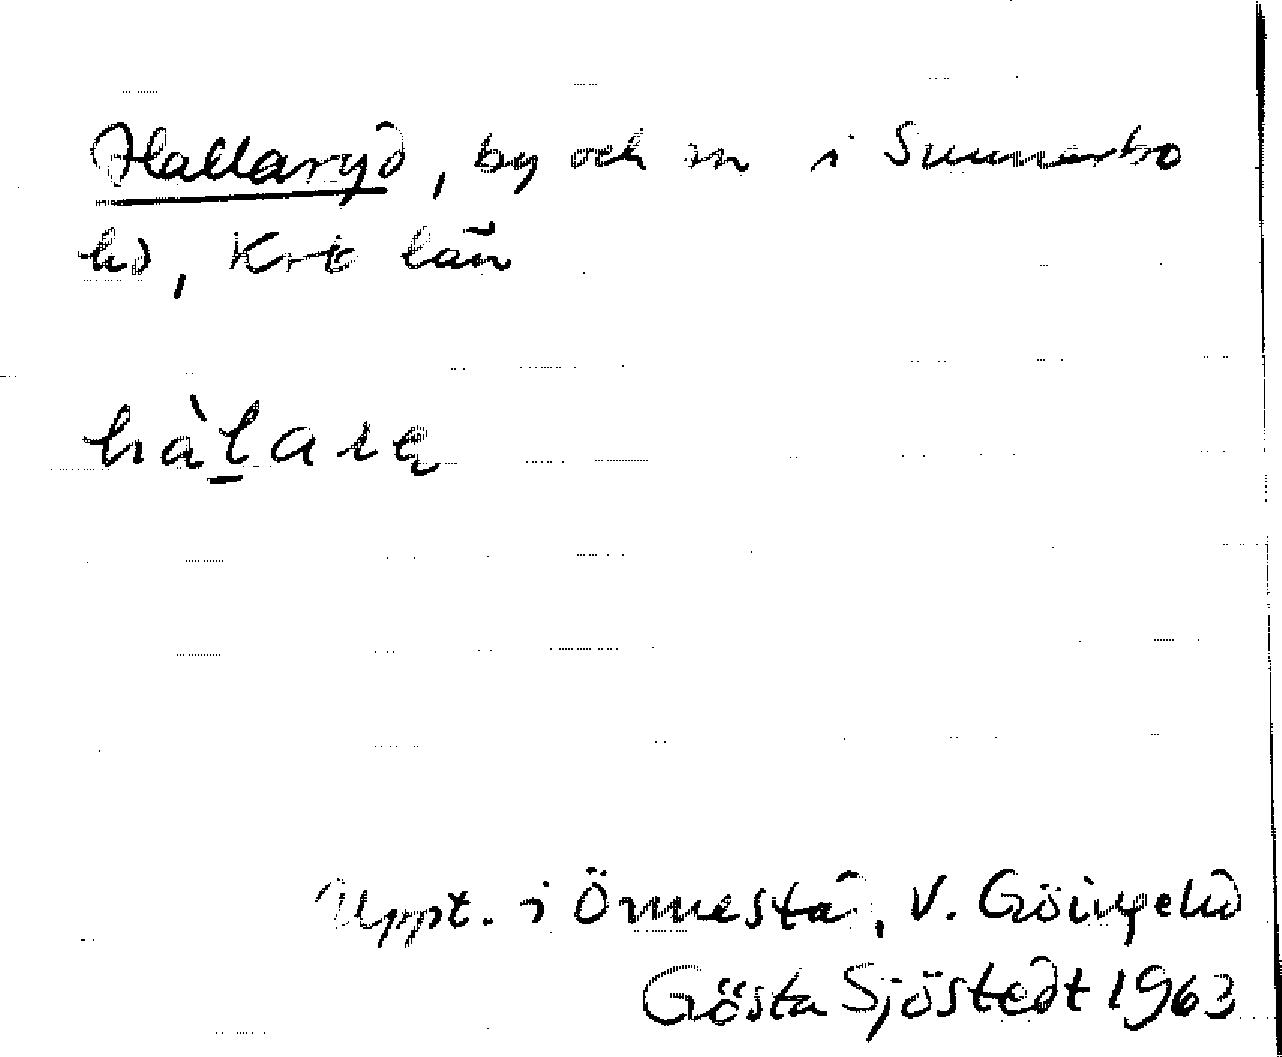 Hallaryd, by och sn i Sunnerbo
hd, Krb län
hàl̠arę
Uppt. i Örnnestå, V. Göingehd
Gösta Sjöstedt 1963